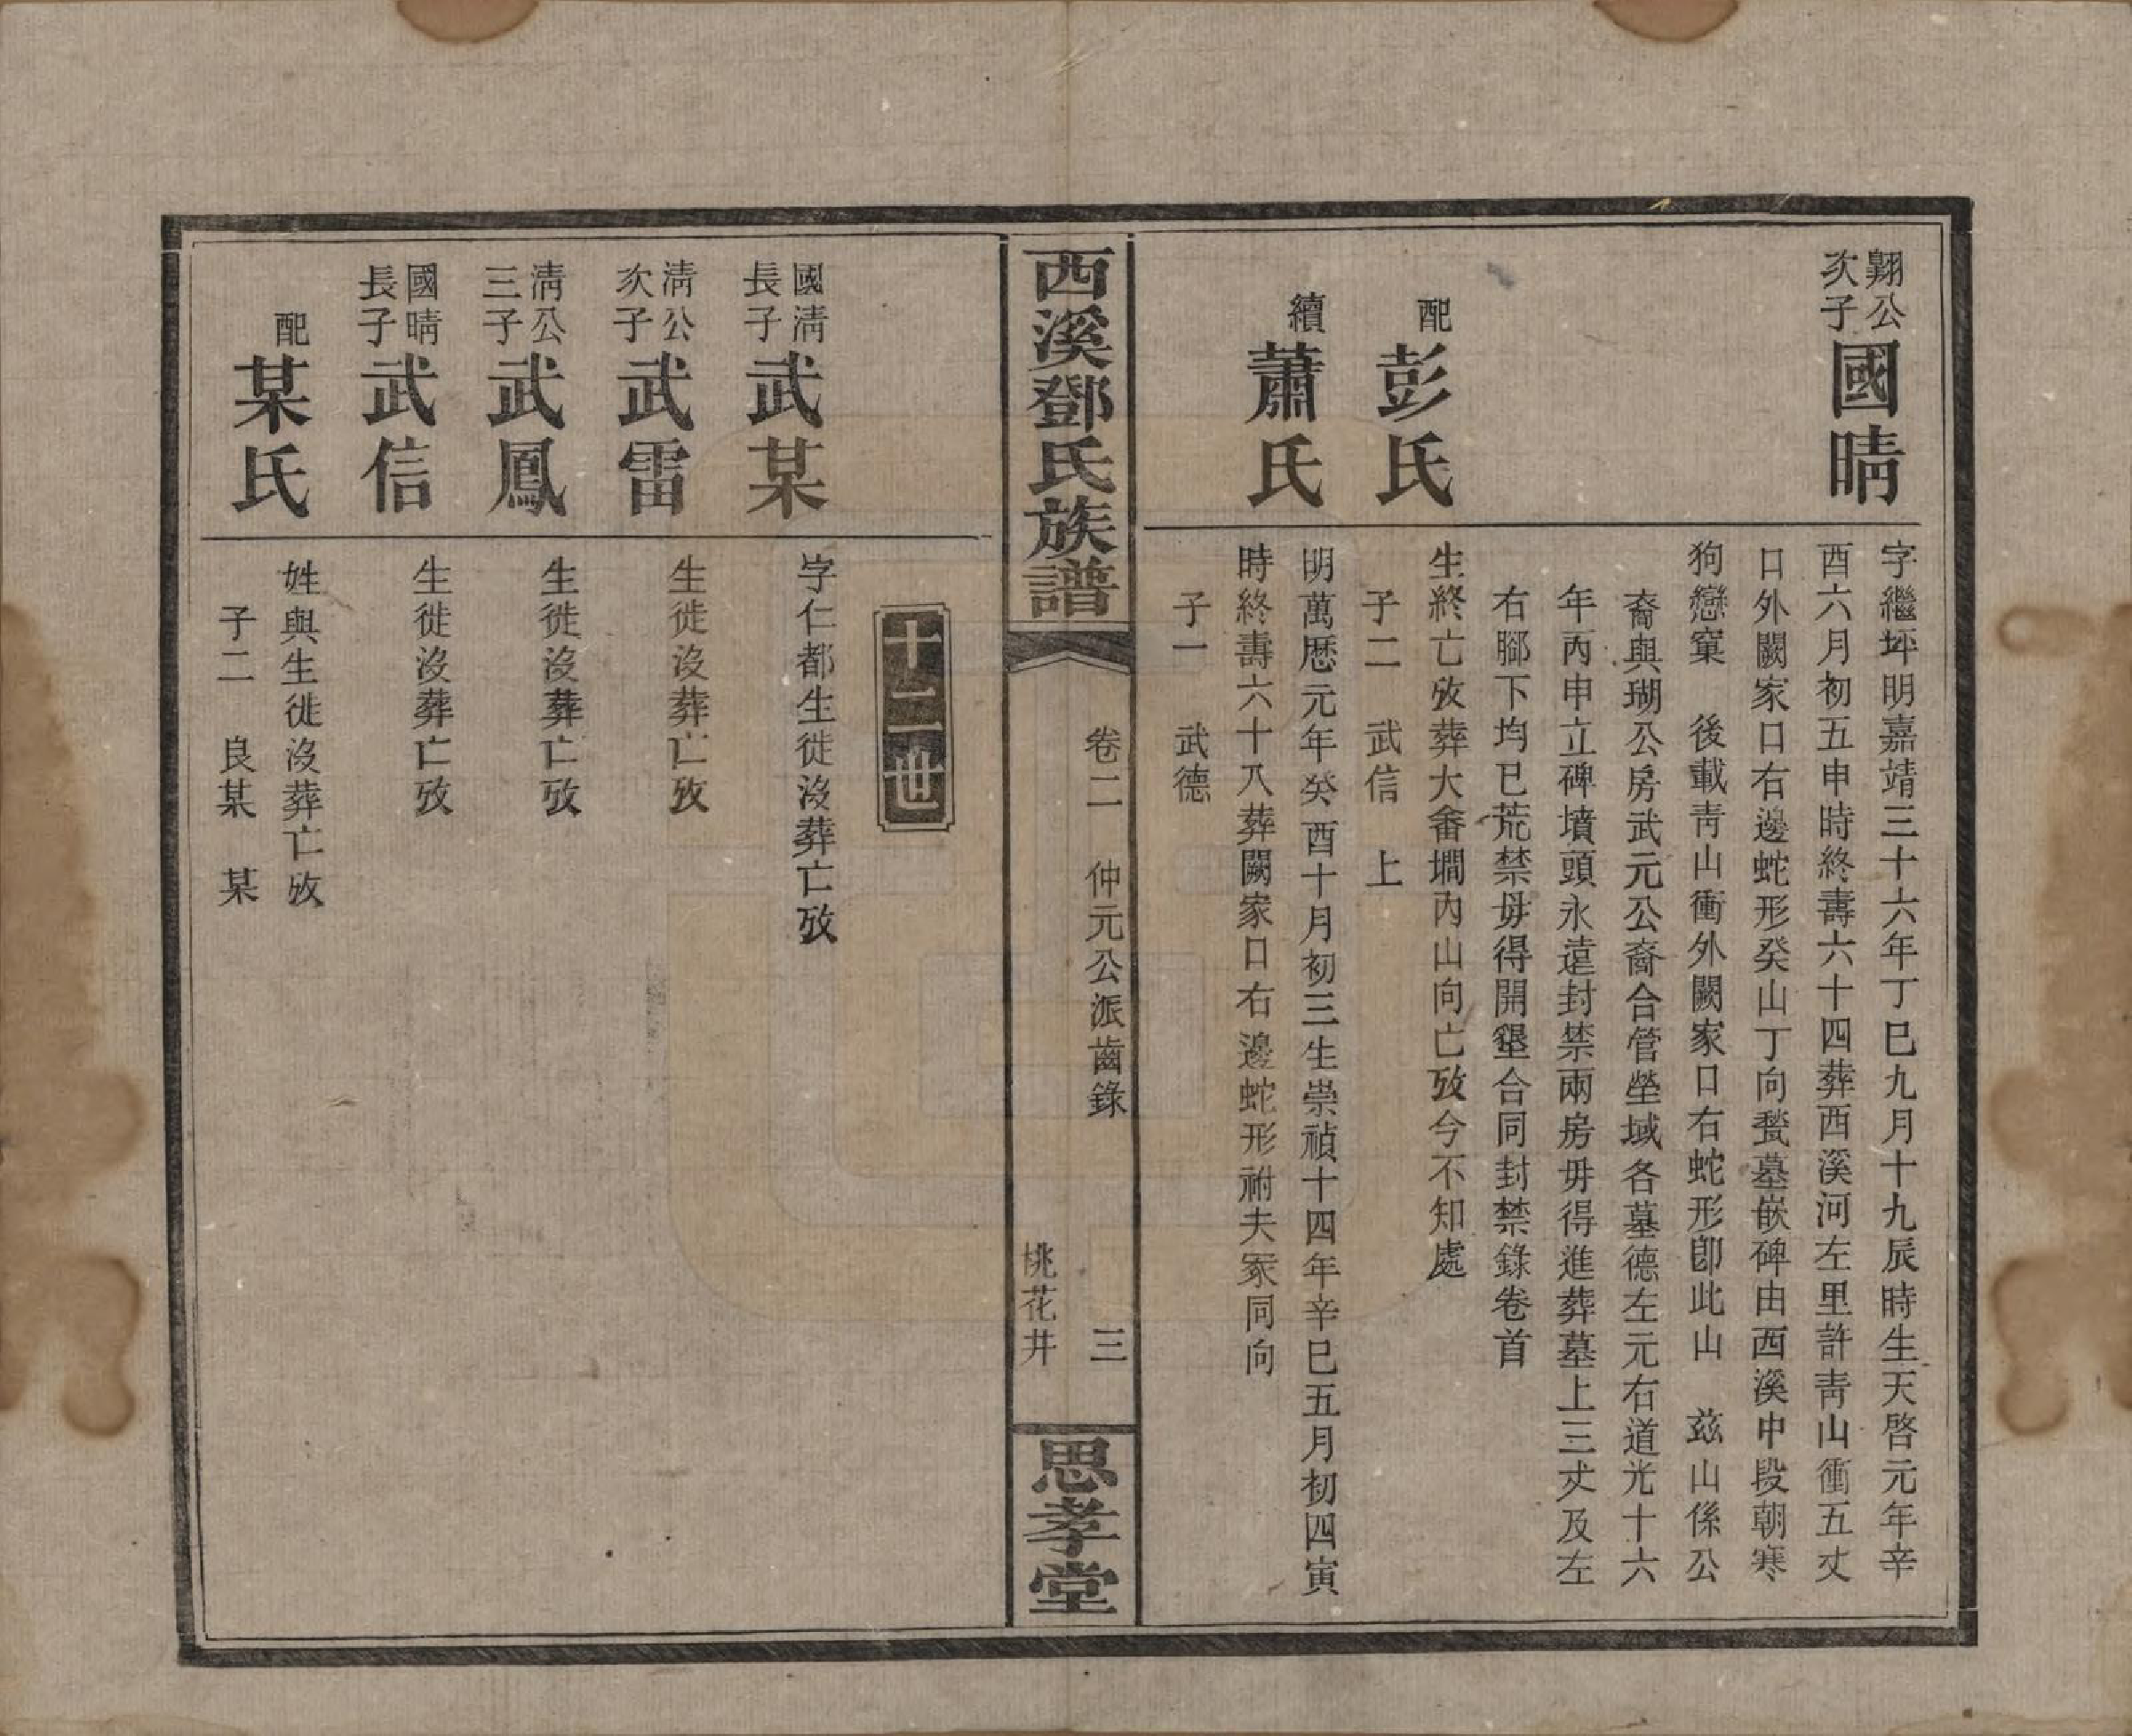 翔公
次子
國晴
字繼坪明嘉靖三十六年丁巳九月十九辰時生天啓元年辛
酉六月初五申時終壽六十四葬西溪河左里許靑山衝五丈
口外闕家口右邊蛇形癸山丁向甃墓嵌碑由西溪中段朝寒
狗戀窠　後載靑山衝外闕家口右蛇形卽此山　茲山係公
裔與瑚公房武元公裔合管塋域各墓德左元右道光十六
年丙申立碑墳頭永遠封禁兩房毋得進葬墓上三丈及左
右腳下均已荒禁毋得開墾合同封禁錄卷首
配
彭氏
生終亡攷葬大畨墹內山向亡攷今不知處
子二　武信　上
續
蕭氏
明萬厯元年癸酉十月初三生崇禎十四年辛巳五月初四寅
時終壽六十八葬闕家口右邊蛇形祔夫冢同向
子一　武德
西溪鄧氏族譜
卷二　仲元公派齒錄　三
桃花井
思孝堂
十二世
國淸
長子
武某
字仁都生徙沒葬亡攷
淸公
次子
武雷
生徙沒葬亡攷
淸公
三子
武鳳
生徙沒葬亡攷
國晴
長子
武信
生徙沒葬亡攷
配
某氏
姓與生徙沒葬亡攷
子二　良某　某